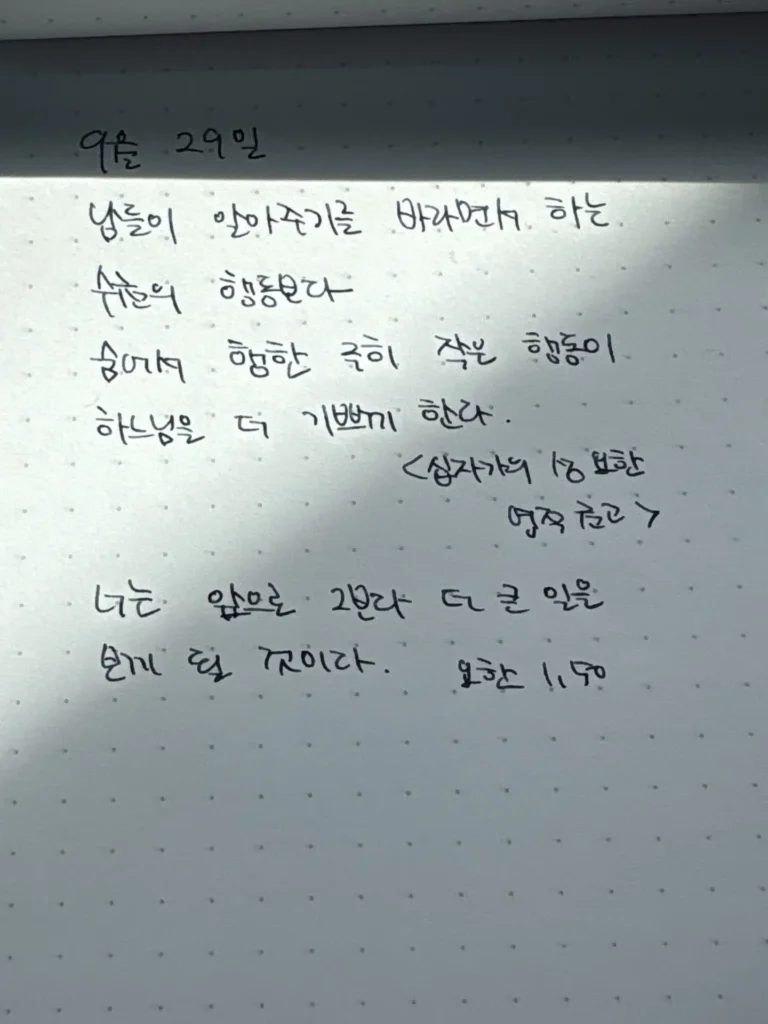 9월 29일
남들이 알아주기를 바라면서 하는
수천의 행동보다
숨어서 행한 극히 작은 행동이
하느님을 더 기쁘게 한다.
<십자가의 성 요한
영적 권고>
너는 앞으로 그보다 더 큰 일을
보게 될 것이다. 요한 1,50